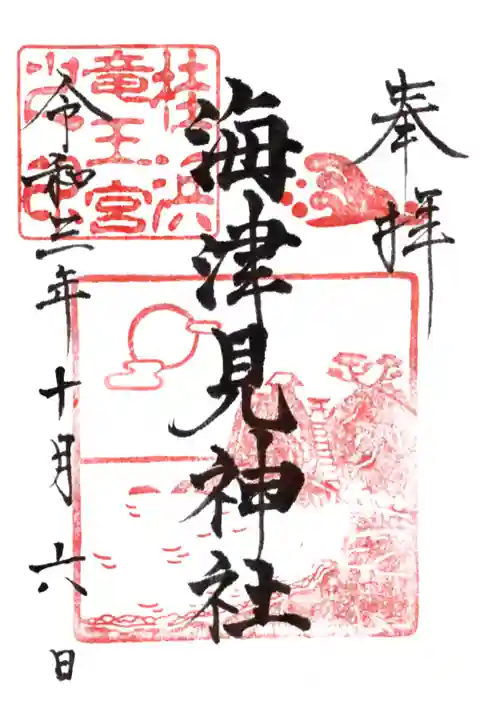 奉拝
海津見神社
令和三年十月六日
桂浜
竜王宮